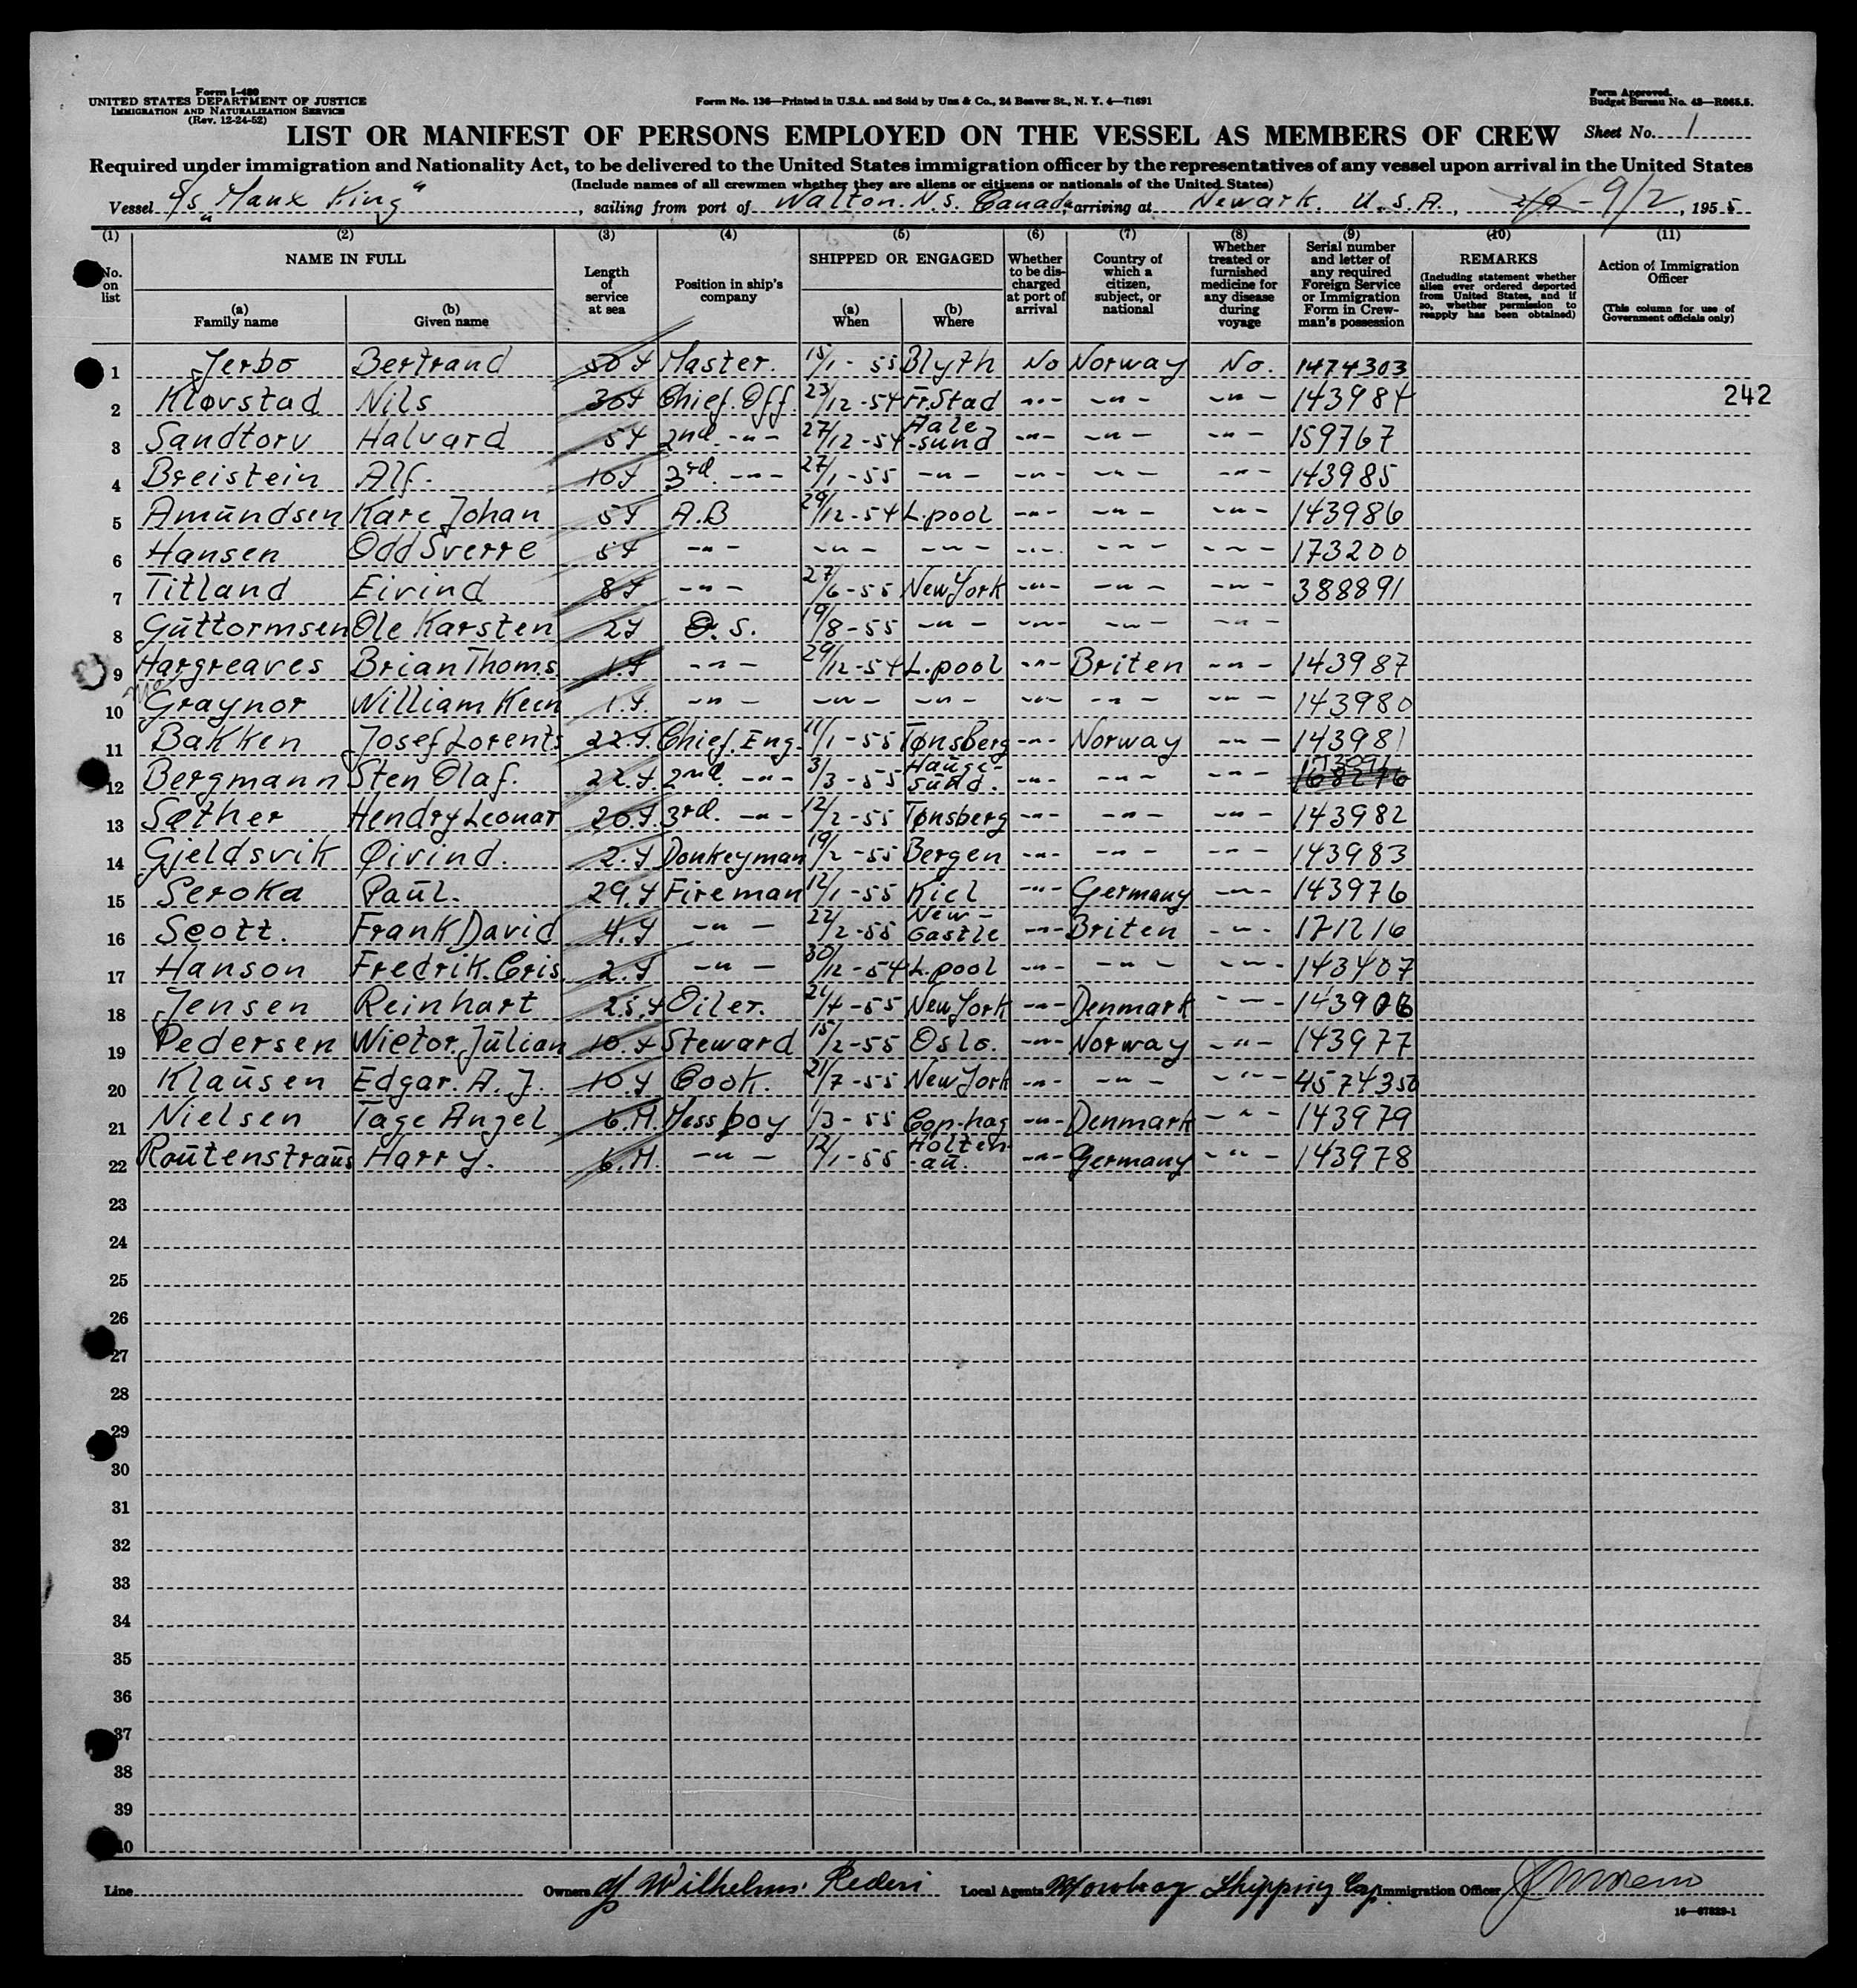 Form I-480
UNITED STATES DEPARTMENT OF JUSTICE
IMMIGRATION AND NATURALIZATION SERVICE
(Rev. 12-24-52)
Form No. 136—Printed in U.S.A. and Sold by Unz & Co., 24 Beaver St., N. Y. 4—71691
Form Approved.
Budget Bureau No. 43—R065.5.
LIST OR MANIFEST OF PERSONS EMPLOYED ON THE VESSEL AS MEMBERS OF CREW Sheet No. 1
Required under immigration and Nationality Act, to be delivered to the United States immigration officer by the representatives of any vessel upon arrival in the United States
(Include names of all crewmen whether they are aliens or citizens or nationals of the United States)
Vessel S/s „Manx King", sailing from port of Walton. N.S. Canada, arriving at Newark. U.S.A., 9/2, 1955
(1) No. on list
(2) NAME IN FULL (a) Family name (b) Given name
(3) Length of service at sea
(4) Position in ship's company
(5) SHIPPED OR ENGAGED (a) When (b) Where
(6) Whether to be discharged at port of arrival
(7) Country of which a citizen, subject, or national
(8) Whether treated or furnished medicine for any disease during voyage
(9) Serial number and letter of any required Foreign Service or Immigration Form in Crewman's possession
(10) REMARKS (Including statement whether alien ever ordered deported from United States, and if so, whether permission to reapply has been obtained)
(11) Action of Immigration Officer (This column for use of Government officials only)
1 Jerbo Bertrand 50 Y Master. 15/1 - 55 Blyth No Norway No. 1474303
2 Kløvstad Nils 30Y Chief. Off. 23/12 - 54 Fr.Stad -"- -"- -"- 143984 242
3 Sandtorv Halvard 5Y 2nd. -"- 27/12 - 54 Aale-sund -"- -"- -"- 159767
4 Breistein Alf. 10Y 3rd. -"- 27/1 - 55 -"- -"- -"- -"- 143985
5 Amundsen Kare Johan 5Y A.B 29/12 - 54 L.pool -"- -"- -"- 143986
6 Hansen Odd Sverre 5Y -"- -"- -"- -"- -"- -"- 173200
7 Titland Eivind 8Y -"- 27/6 - 55 New York -"- -"- -"- 388891
8 Guttormsen Ole Karsten 2Y O. S. 19/8 - 55 -"- -"- -"- -"-
9 Hargreaves Brian Thoms. 1.Y -"- 29/12 - 54 L.pool -"- Briten -"- 143987
10 Graynor William Keen 1.Y. -"- -"- -"- -"- -"- -"- 143980
11 Bakken Josef Lorents 22.Y. Chief. Eng. 11/1 - 55 Tønsberg -"- Norway -"- 143981
12 Bergmann Sten Olaf. 22.Y. 2nd. -"- 3/3 - 55 Hauge-sund. -"- -"- -"-
13 Sæther Hendry Leonar 20.Y. 3rd. -"- 12/2 - 55 Tønsberg -"- -"- -"- 143982
14 Gjeldsvik Øivind. 2.Y Donkeyman 19/2 - 55 Bergen -"- -"- -"- 143983
15 Seroka Paul. 29.Y Fireman 12/1 - 55 Kiel -"- Germany -"- 143976
16 Scott. Frank David 4.Y -"- 22/2 - 55 New-Castle -"- Briten -"- 171216
17 Hanson Fredrik. Cris. 2.Y -"- 30/12 - 54 L.pool -"- -"- -"- 143407
18 Jensen Reinhart 25.Y Oiler. 21/4 - 55 New York -"- Denmark -"-
19 Pedersen Wictor. Julian 10.Y Steward 15/2 - 55 Oslo. -"- Norway -"- 143977
20 Klausen Edgar. A. J. 10.Y Cook. 21/7 - 55 New York -"- -"- -"- 4574350
21 Nielsen Tage Angel 6.M. Mess boy 1/3 - 55 Cop-hag -"- Denmark -"- 143979
22 Routenstraus Harry. 6.M. -"- 12/1 - 55 Holten-au. -"- Germany -"- 143978
23
24
25
26
27
28
29
30
31
32
33
34
35
36
37
38
39
40
Line Owners Wilhelms. Rederi Local Agents Mowbray Shipping Immigration Officer
16—67829-1